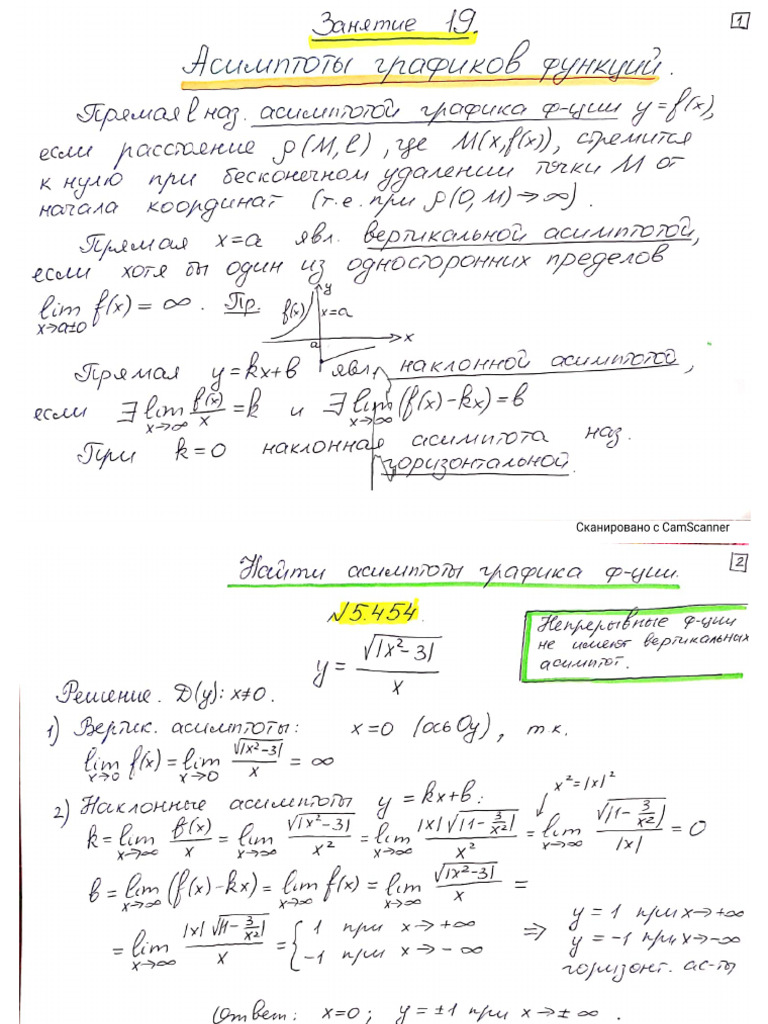 Занятие 19.
1
Асимптоты графиков функций.
Прямая l наз. асимптотой графика ф-ции y=f(x),
если расстояние ρ(M,l), где M(x,f(x)), стремится
к нулю при бесконечном удалении точки M от
начала координат (т.е. при ρ(0,M)→∞).
Прямая x=a явл. вертикальной асимптотой,
если хотя бы один из односторонних пределов
lim f(x) = ∞. Пр. f(x) y x=a
x→a±0
a x
Прямая y=kx+b явл. наклонной асимптотой,
если ∃ lim f(x)/x = k и ∃ lim (f(x)-kx)=b
x→∞ x→∞
При k=0 наклонная асимптота наз.
горизонтальной.
Сканировано с CamScanner
2
Найти асимптоты графика ф-ции.
№5.454.
Непрерывные ф-ции
не имеют вертикальных
асимптот.
y = √|x²-3| / x
Решение. D(y): x≠0.
1) Вертик. асимптоты: x=0 (ось Oy), т.к.
lim f(x) = lim √|x²-3| / x = ∞
x→0 x→0
2) Наклонные асимптоты y=kx+b: x²=|x|²
k = lim f(x)/x = lim √|x²-3| / x² = lim |x|√|1-3/x²| / x² = lim √|1-3/x²| / |x| = 0
x→∞ x→∞ x→∞ x→∞
b = lim (f(x)-kx) = lim f(x) = lim √|x²-3| / x =
x→∞ x→∞ x→∞
= lim |x|√|1-3/x²| / x = { 1 при x→+∞ ⇒ y=1 при x→+∞
x→∞ -1 при x→-∞ y=-1 при x→-∞
горизонт. ас-ты
Ответ: x=0; y=±1 при x→±∞.